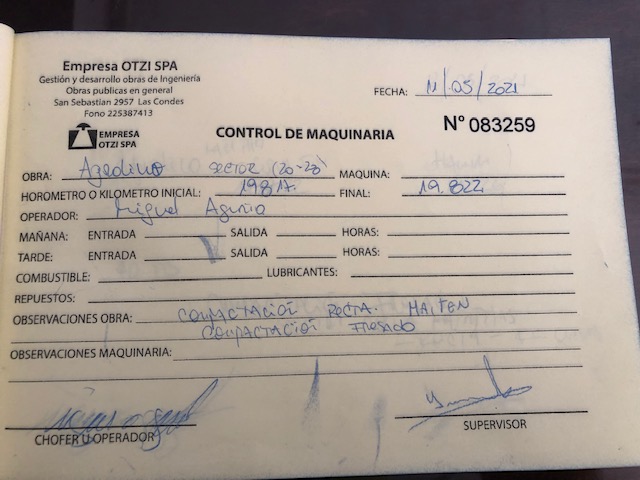 Empresa OTZI SPA
Gestión y desarrollo obras de Ingeniería
Obras publicas en general
San Sebastian 2957 Las Condes
Fono 225387413
FECHA: 11/05/2021
EMPRESA
OTZI SPA
CONTROL DE MAQUINARIA
N° 083259
OBRA: sector (20-28) MAQUINA:
HOROMETRO O KILOMETRO INICIAL: FINAL: 19.822
OPERADOR: Miguel
MAÑANA: ENTRADA SALIDA HORAS:
TARDE: ENTRADA SALIDA HORAS:
COMBUSTIBLE: LUBRICANTES:
REPUESTOS:
OBSERVACIONES OBRA: MAITEN
COMPACTACION
OBSERVACIONES MAQUINARIA:
CHOFER U OPERADOR
SUPERVISOR